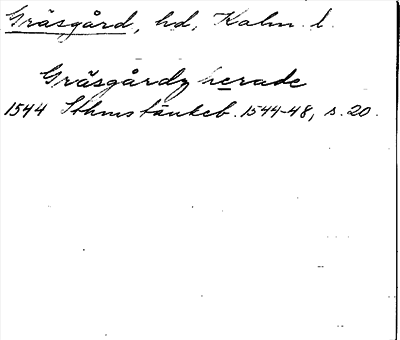 Gräsgård, hd, Kalm. l.
Gräsgårdz herade
1544 Sthms tänkeb. 1544-48, s. 20.